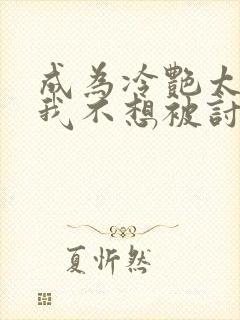 成為冷艷太
我不想被討
夏忻然